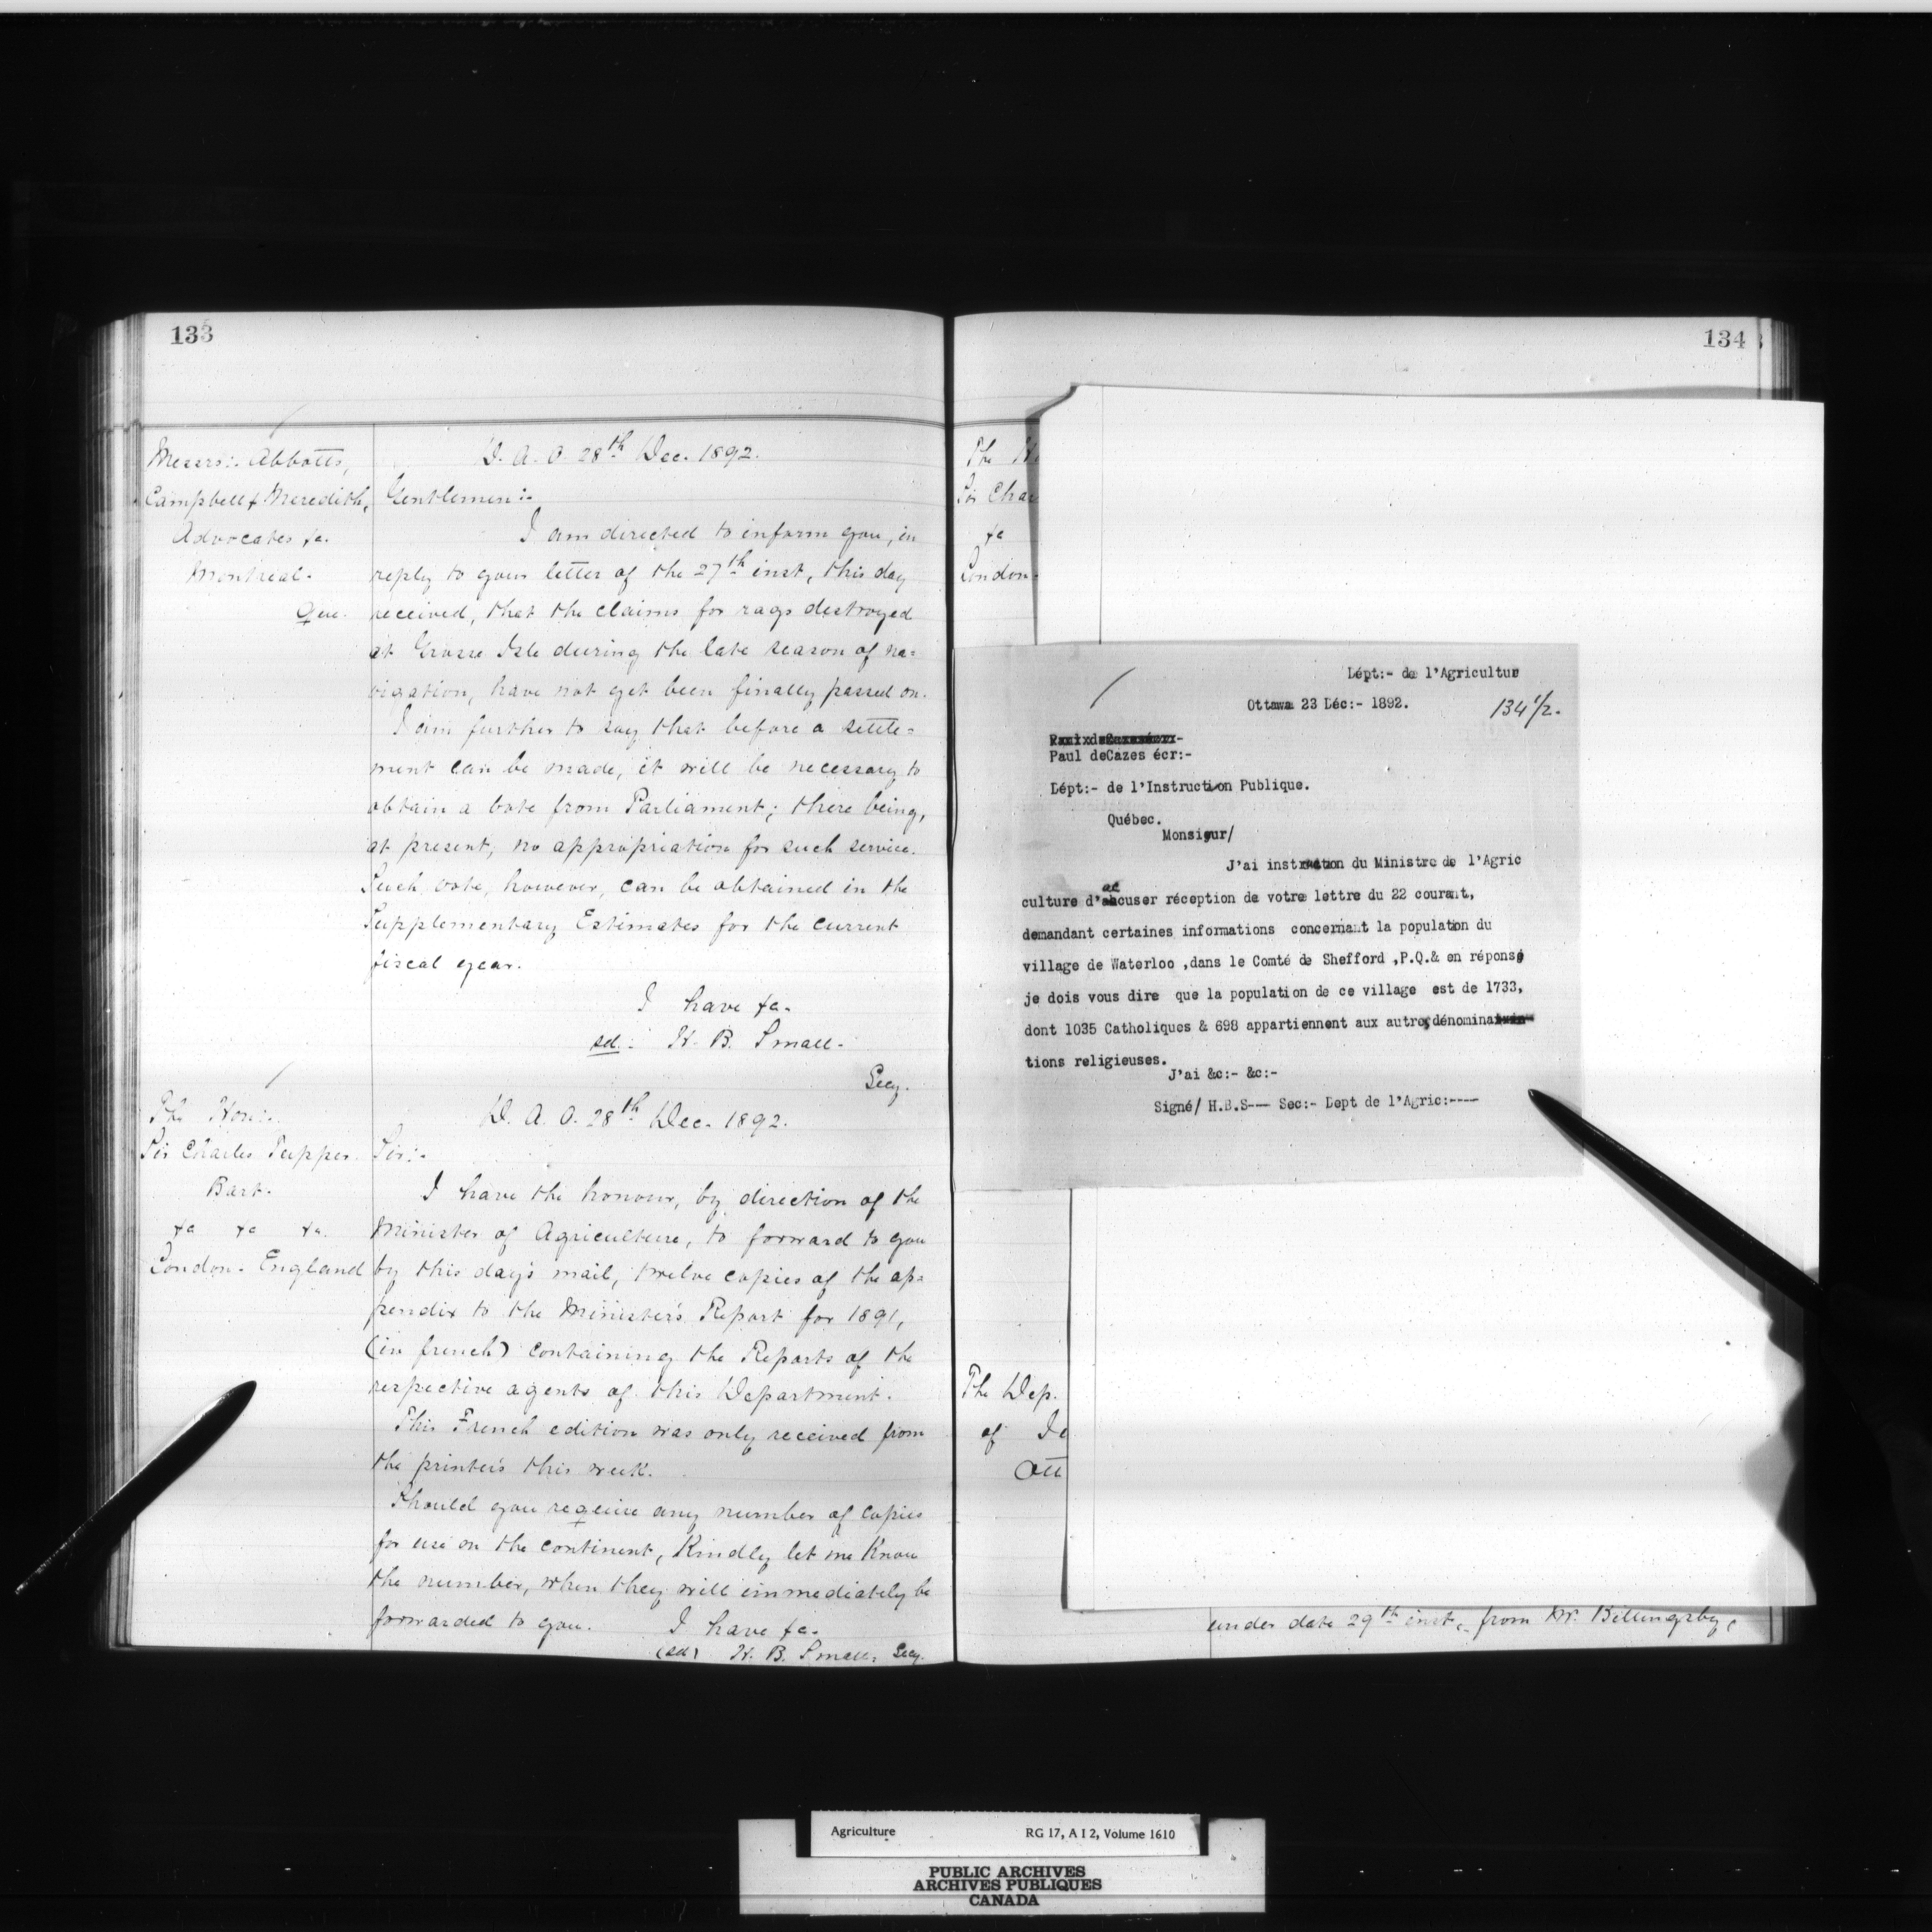 133
Messrs:. Abbotts,
Campbell & Meredith,
Advocates &c.
Montreal.
Que.
D. A. O. 28th Dec. 1892.
Gentlemen:.
I am directed to inform you, in
reply to your letter of the 27th inst, this day
received, that the claims for rags destroyed
at Grosse Isle during the late season of na=
vigation, have not yet been finally passed on.
I am further to say that before a settle=
ment can be made, it will be necessary to
obtain a vote from Parliament; there being,
at present, no appropriation for such service.
Such vote, however, can be obtained in the
Supplementary Estimates for the current
fiscal year.
I have &c.
sd.: H. B. Small.
Secy.
The Hon:.
Sir Charles Tupper
Bart.
&c &c &c.
London. England
D. A. O. 28th Dec. 1892.
Sir:.
I have the honour, by direction of the
Minister of Agriculture, to forward to you
by this day's mail, twelve copies of the ap=
pendix to the Minister's Report for 1891,
(in french) containing the Reports of the
respective agents of this Department.
This French edition was only received from
the printers this week.
Should you require any number of copies
for use on the continent, Kindly let me Know
the number, when they will immediately be
forwarded to you. I have &c.
(sd) H. B. Small, Secy.
134
The H
Sir Char
&c
London.
Lépt:- de l'Agricultur
Ottawa 23 Déc:- 1892.
134 1/2.
Paul deCazes écr:-
Lépt:- de l'Instruction Publique.
Québec.
Monsieur/
J'ai instruction du Ministre de l'Agric
culture d'accuser réception de votre lettre du 22 courant,
demandant certaines informations concernant la population du
village de Waterloo ,dans le Comté de Shefford ,P.Q.& en réponse
je dois vous dire que la population de ce village est de 1733,
dont 1035 Catholiques & 698 appartiennent aux autres dénomina
tions religieuses.
J'ai &c:- &c:-
Signé/ H.B.S--- Sec:- Dept de l'Agric:----
The Dep.
of
Ott
under date 29th inst., from Mr. Billingsby,
Agriculture RG 17, A I 2, Volume 1610
PUBLIC ARCHIVES
ARCHIVES PUBLIQUES
CANADA